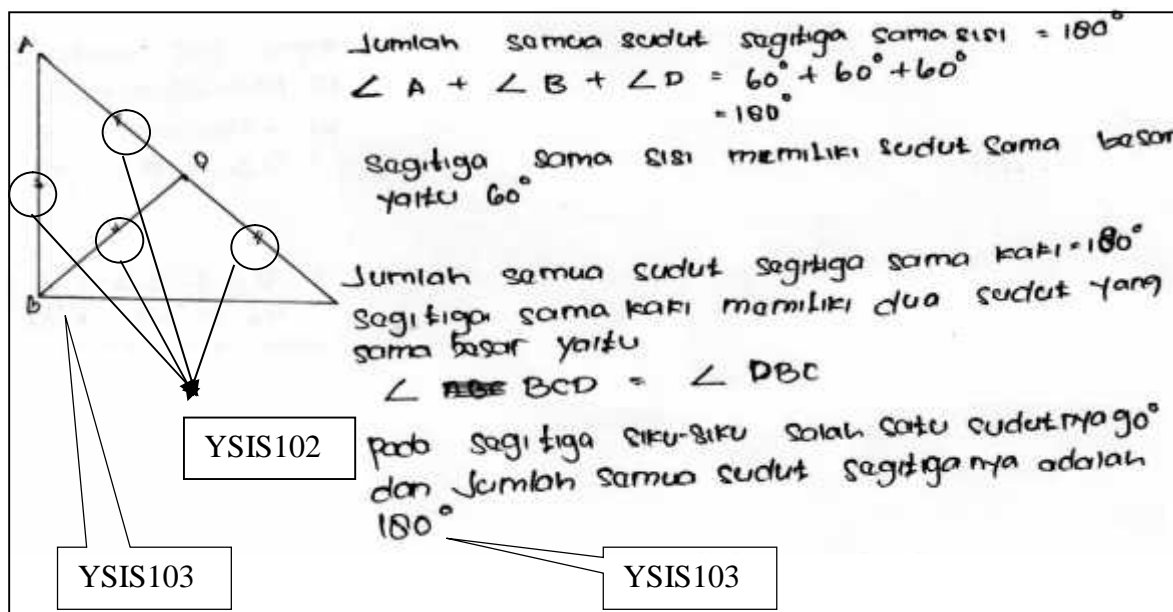 A
D
B
Jumlah semua sudut segitiga sama sisi = 180°
∠ A + ∠ B + ∠ D = 60° + 60° + 60°
= 180°
segitiga sama sisi memiliki sudut sama besar
yaitu 60°
Jumlah semua sudut segitiga sama kaki = 180°
segitiga sama kaki memiliki dua sudut yang
sama besar yaitu
∠ BCD = ∠ DBC
pada segitiga siku-siku salah satu sudutnya 90°
dan Jumlah semua sudut segitiganya adalah
180°
YSIS102
YSIS103
YSIS103